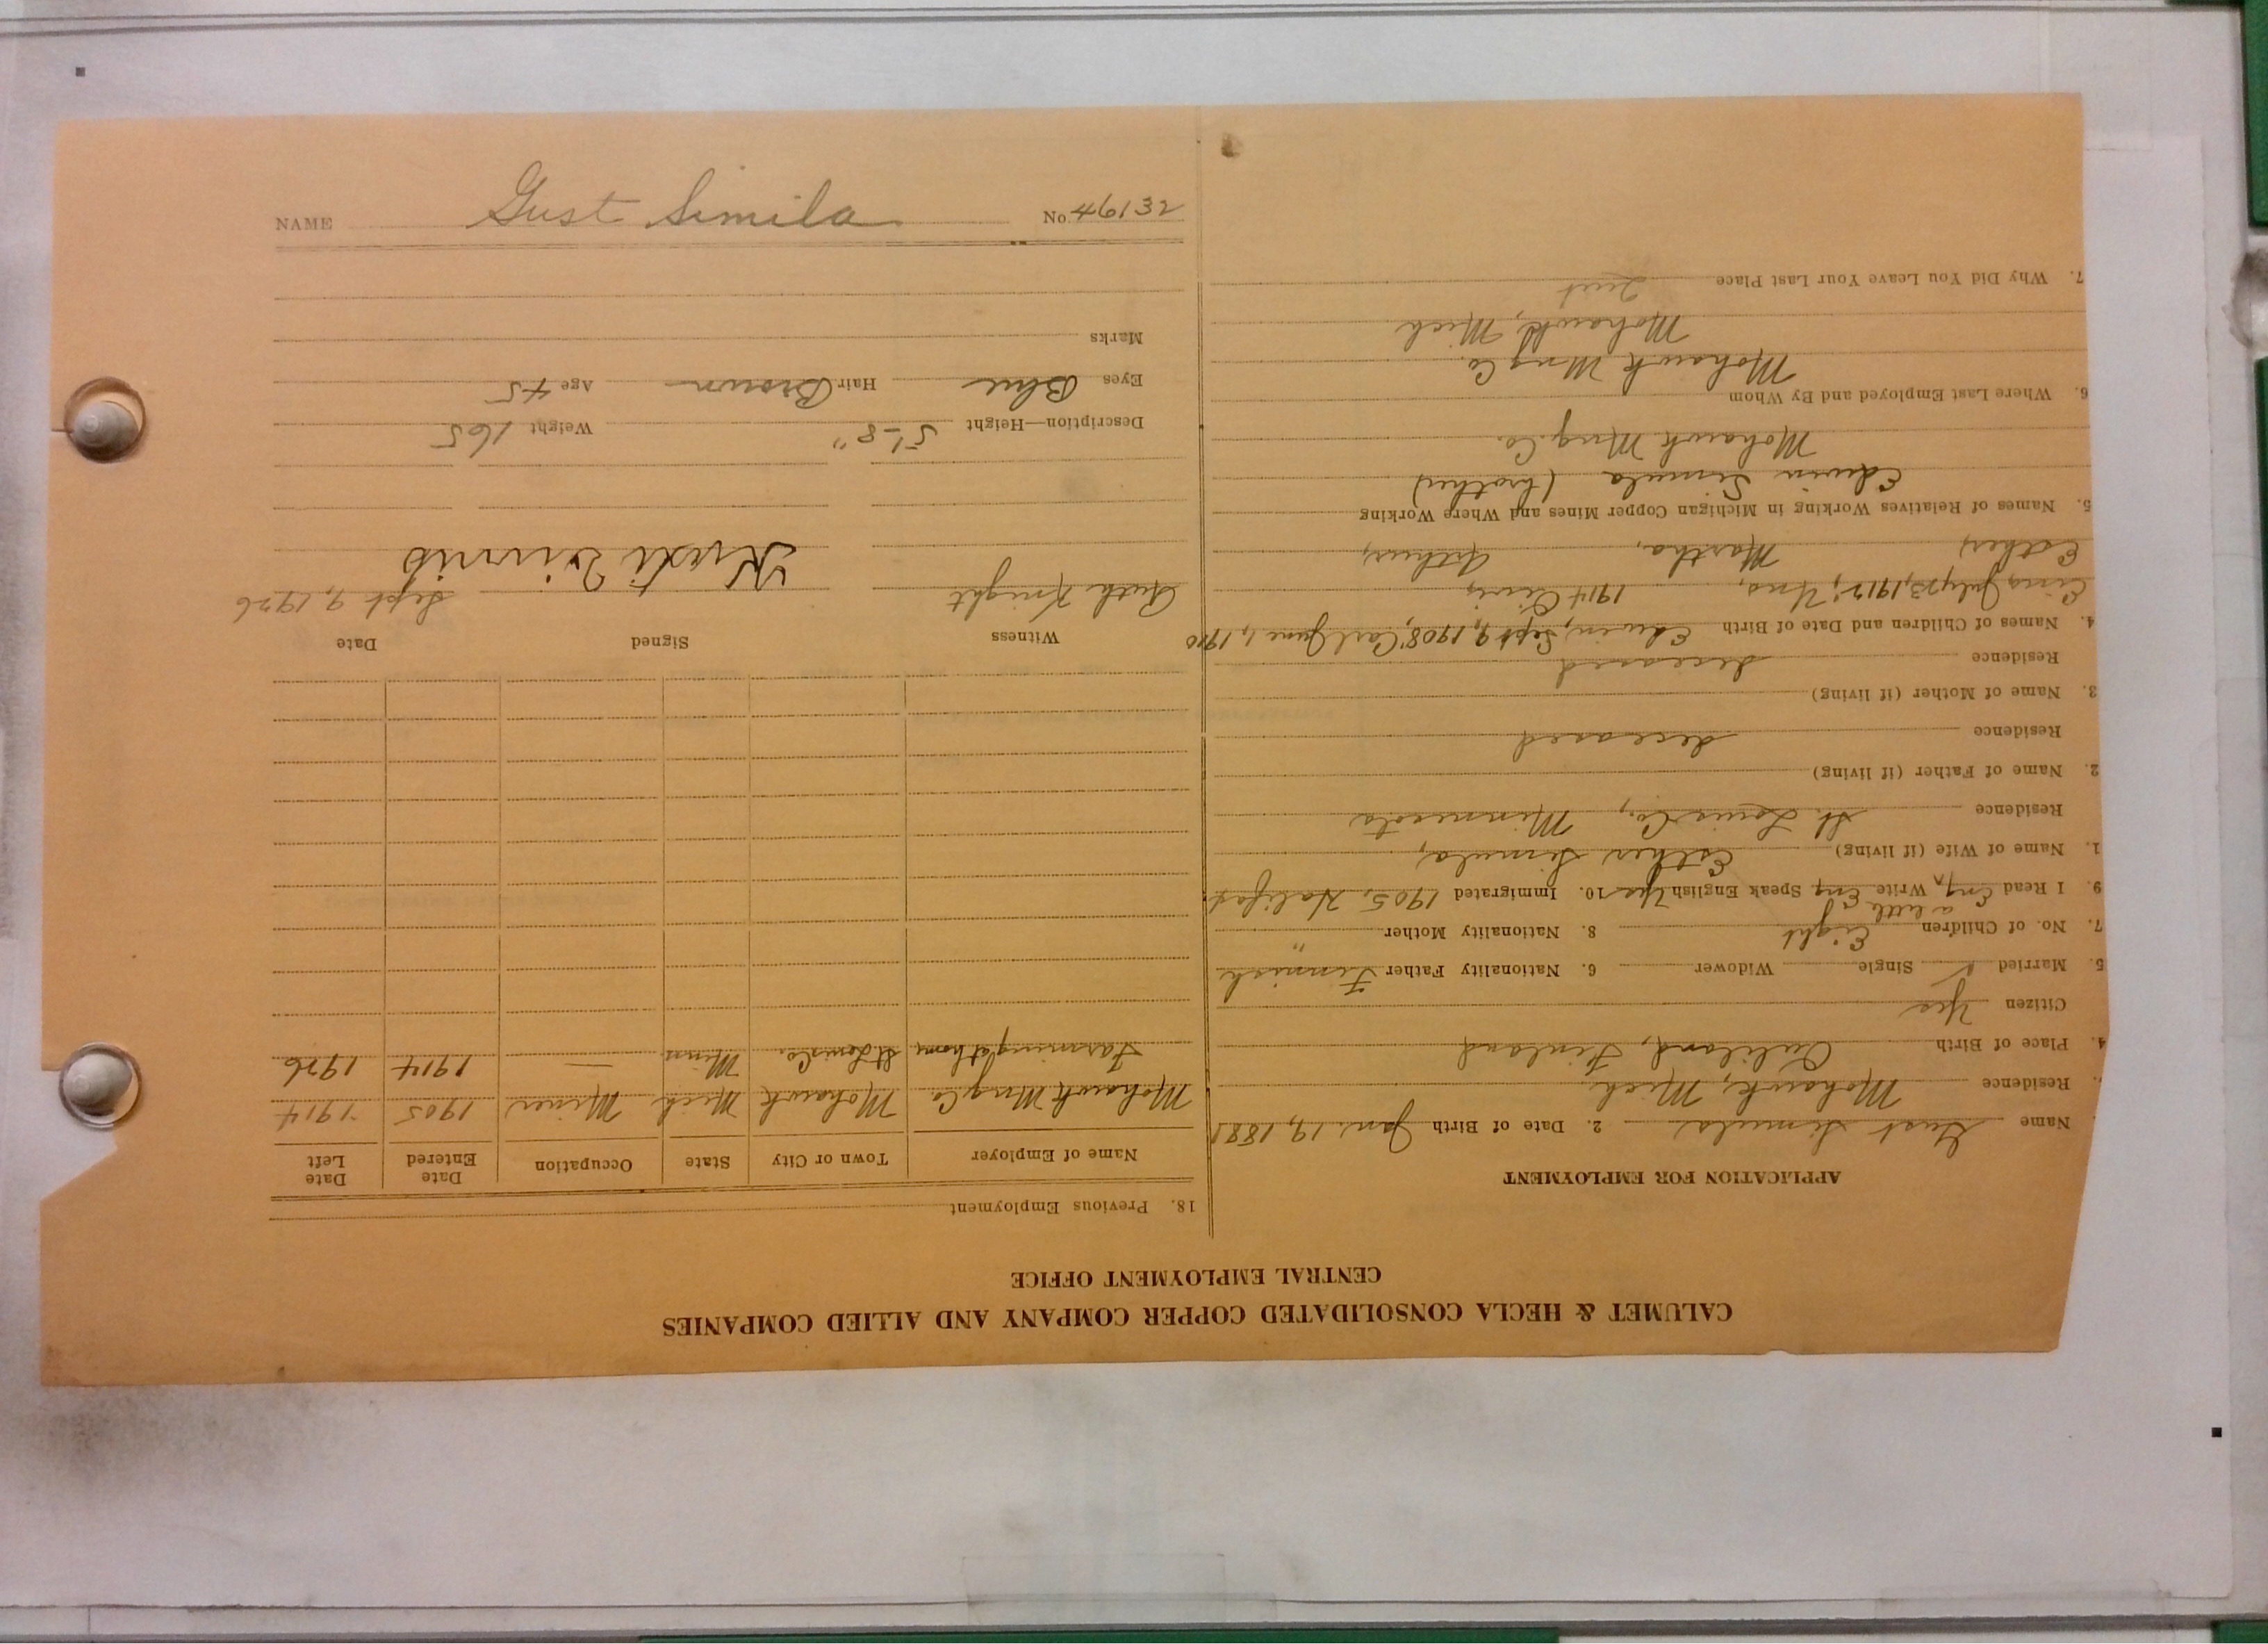 CALUMET & HECLA CONSOLIDATED COPPER COMPANY AND ALLIED COMPANIES
CENTRAL EMPLOYMENT OFFICE
APPLICATION FOR EMPLOYMENT
Name Gust Simula 2. Date of Birth Jan. 19, 1881
Residence Mohawk, Mich.
4. Place of Birth Finland
Citizen Yes
5. Married ✓ Single Widower 6. Nationality Father Finnish
7. No. of Children Eight 8. Nationality Mother "
a little
9. I Read Eng Write Eng Speak English Yes 10. Immigrated 1905, Halifax
1. Name of Wife (if living) Esther Simula,
Residence St. Louis Co., Minnesota
2. Name of Father (if living)
Residence deceased
3. Name of Mother (if living)
Residence deceased
4. Names of Children and Date of Birth Edwin, Sept 9, 1908, Carl June 1, 1910
July 23, 1912, Uno, 1914
Esther, Martha, Arthur,
5. Names of Relatives Working in Michigan Copper Mines and Where Working
Edwin Simula (brother)
Mohawk Mng. Co.
6. Where Last Employed and By Whom
Mohawk Mng Co.
Mohawk, Mich
7. Why Did You Leave Your Last Place Quit
18. Previous Employment
Name of Employer Town or City State Occupation Date Entered Date Left
Mohawk Mng Co. Mohawk Mich Miner 1905 1914
Farming at home St. Louis Co. Minn — 1914 1926
Witness Signed Date
Ruth Knight Kusti Sept 9, 1926
Description—Height 5'-8" Weight 165
Eyes Blue Hair Brown Age 45
Marks
NAME Gust Simila No. 46132